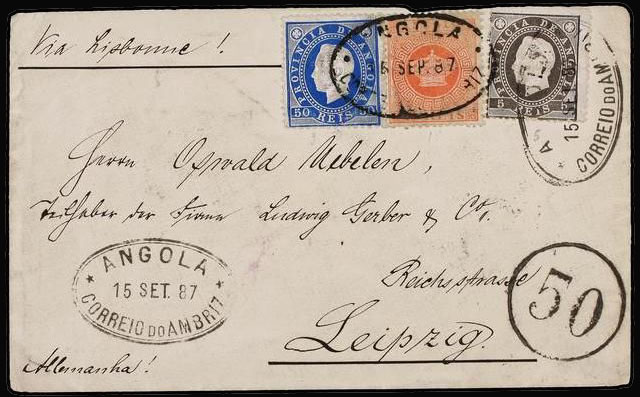 Via Lisbonne!
PROVINCIA DE ANGOLA
50 REIS
ANGOLA
SEP. 87
PROVINCIA DE AN
5 REIS
15 SET
CORREIO DO AMB
Herrn Oswald Uebelen,
Teilhaber der Firma Ludwig Gerber & Co.
Reichsstrasse
Leipzig.
ANGOLA
15 SET. 87
CORREIO DO AMBRIZ
50
Allemanha!